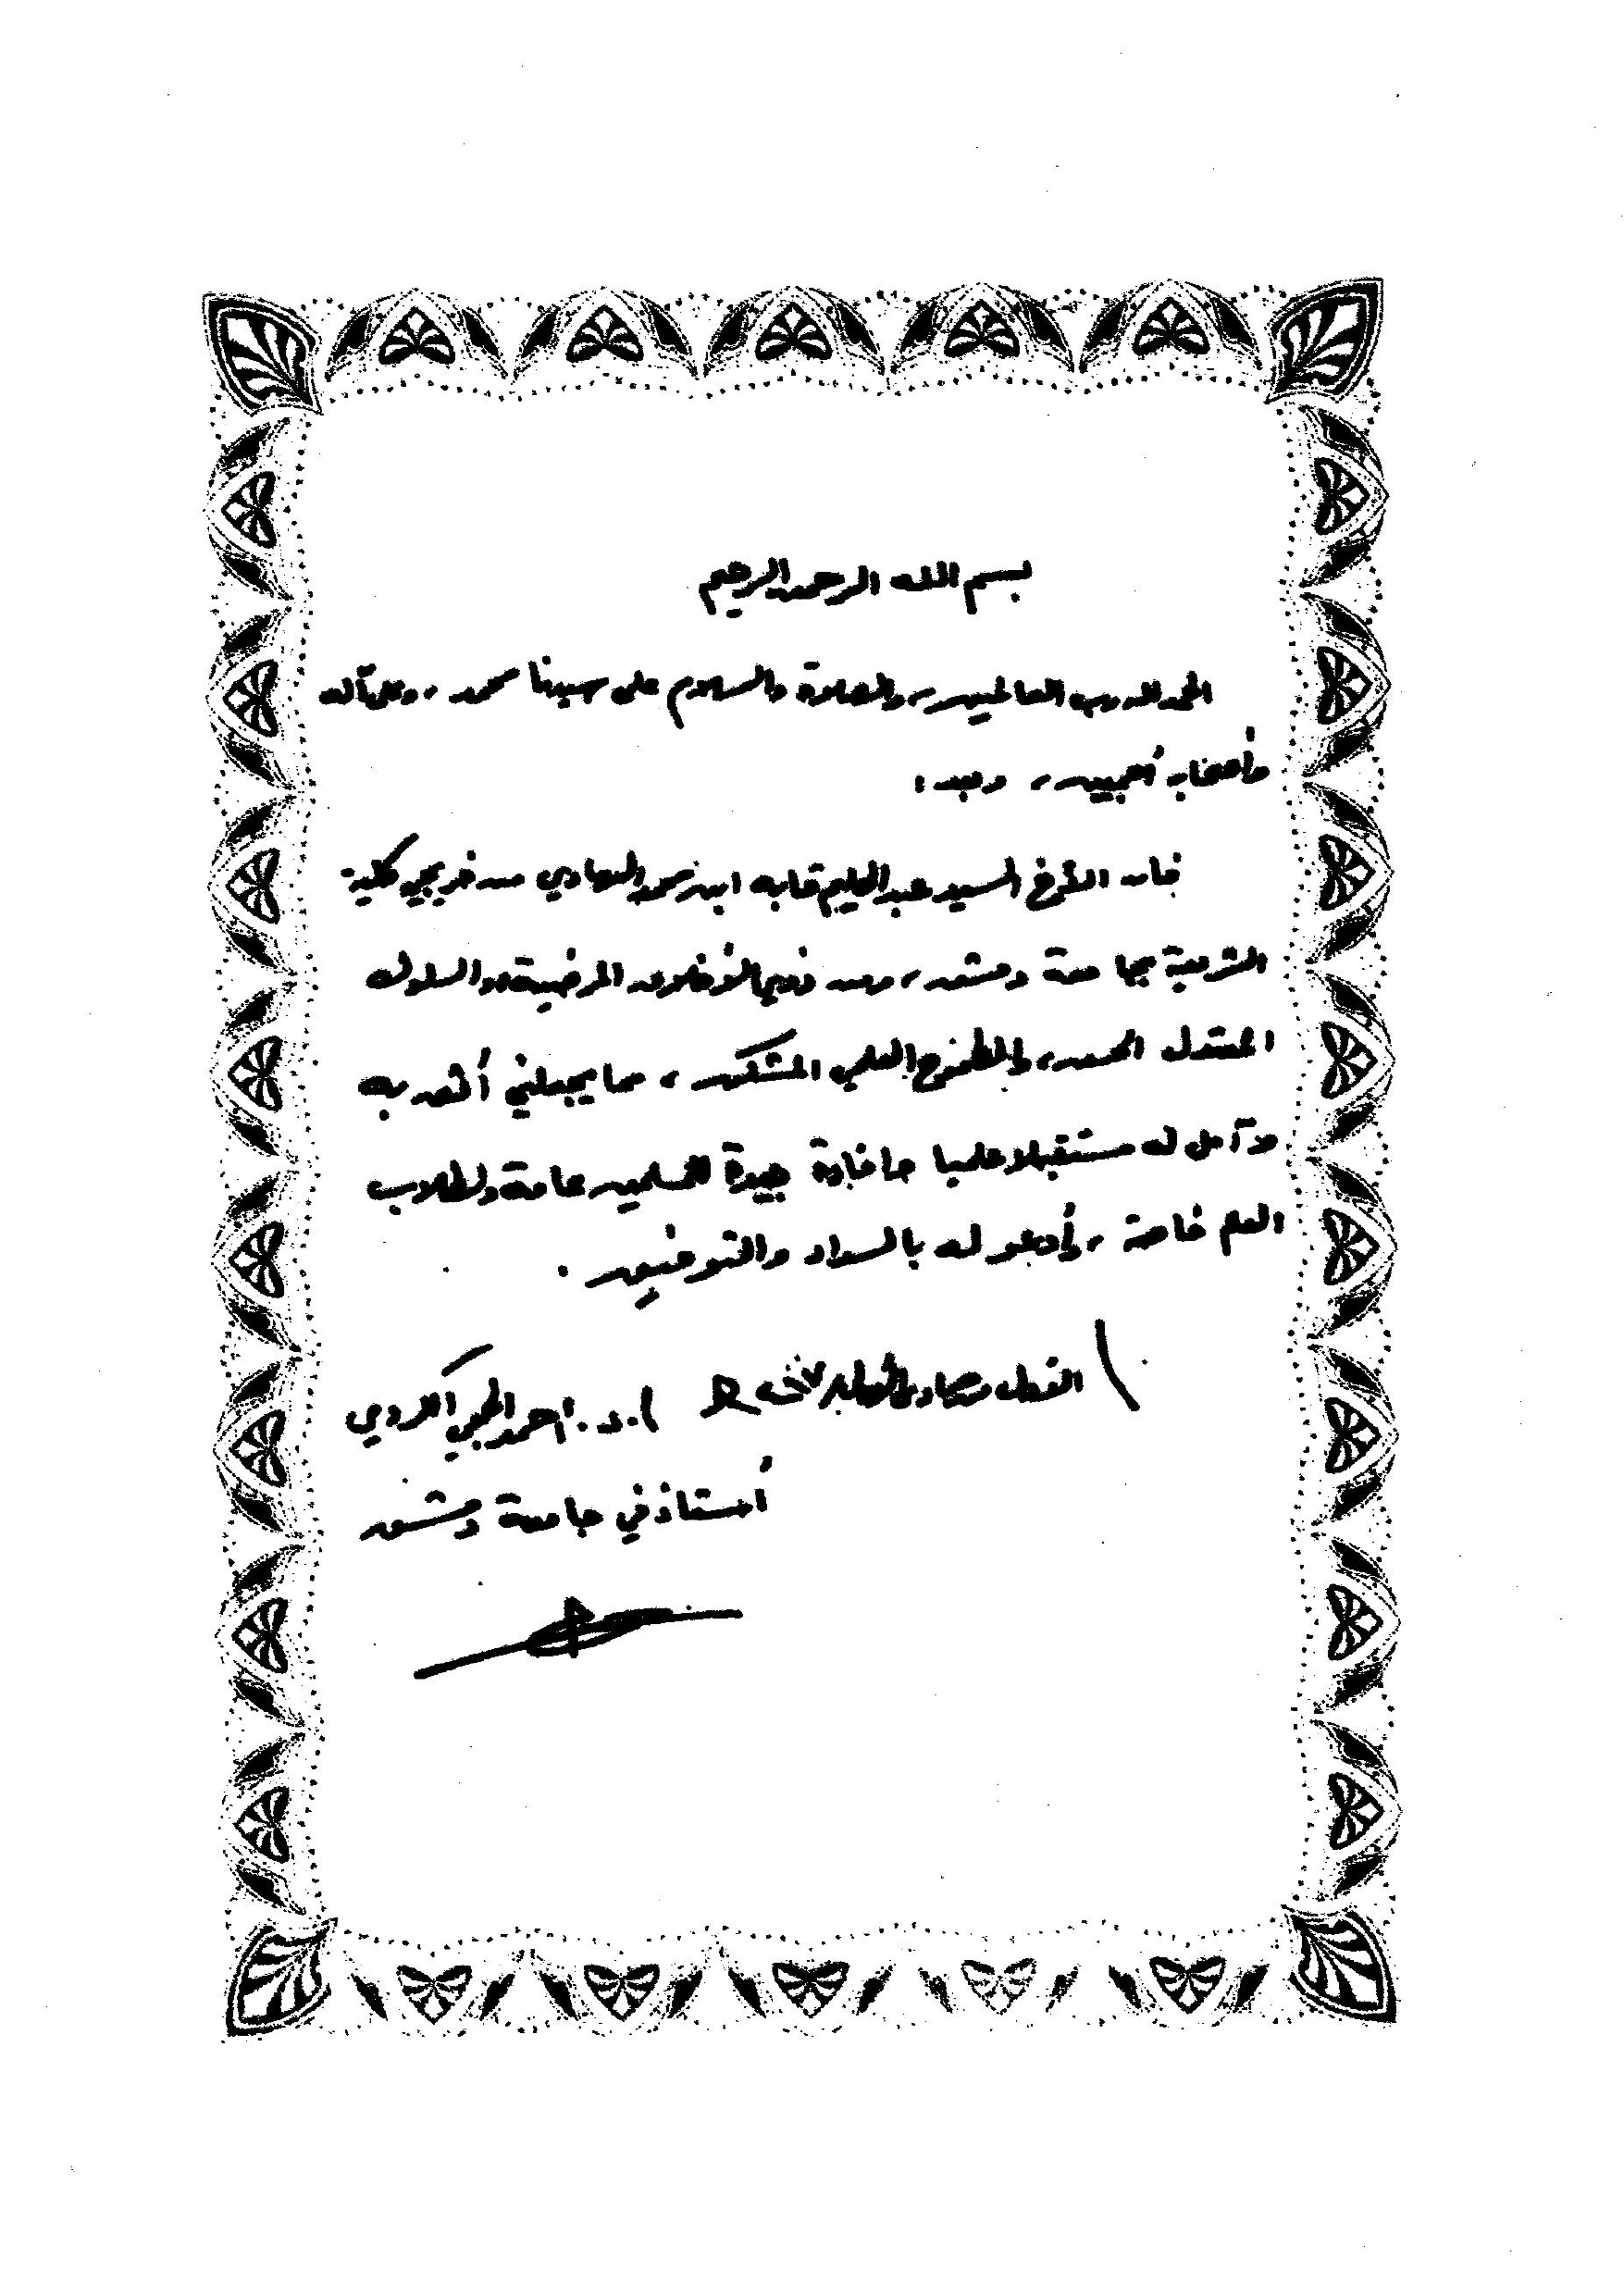 بسم الله الرحمن الرحيم
الحمد لله رب العالمين، والصلاة والسلام على سيدنا محمد، وعلى آله
وأصحابه أجمعين، وبعد:
فإن الأخ السيد عبد الحليم قابه ابن محمد الهادي من خريجي كلية
الشريعة بجامعة دمشق، ومن ذوي الأخلاق المرضية، والسلوك
المعتدل الحسن، والطموح العلمي المشكور، مما يجعلني أثق به
وآمل له مستقبلا علميا وإفادة جيدة للمسلمين عامة ولطلاب
العلم خاصة، وأدعو له بالسداد والتوفيق.
أ.د. أحمد الحجي الكردي
أستاذ في جامعة دمشق